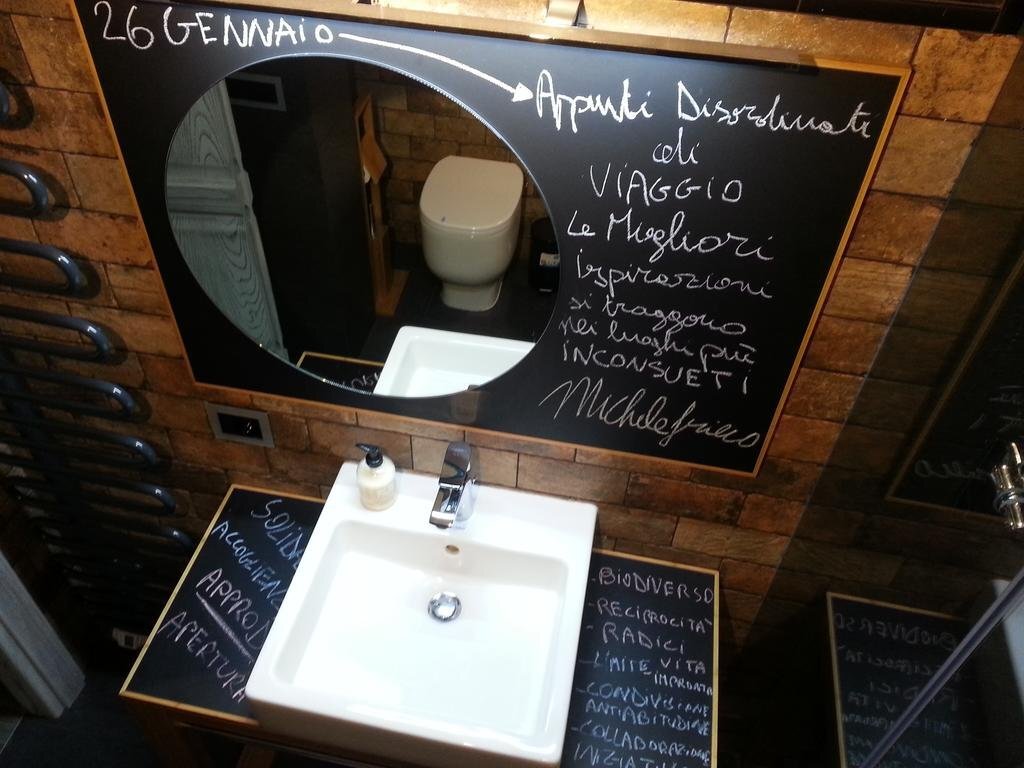 26 GENNAIO
Appunti Disordinati
di
VIAGGIO
Le Migliori
ispirazioni
si traggono
nei luoghi più
INCONSUETI
SOLIDA
ACCOGLIENZ
APPROD
APERTURA
-BIODIVERSO
-RECIPROCITA'
-RADICI
-LIMITE VITA
-IMPRONTA
-CONDIVISIONE
ANTIABITUDINE
-COLLABORAZIONE
INIZIATIV